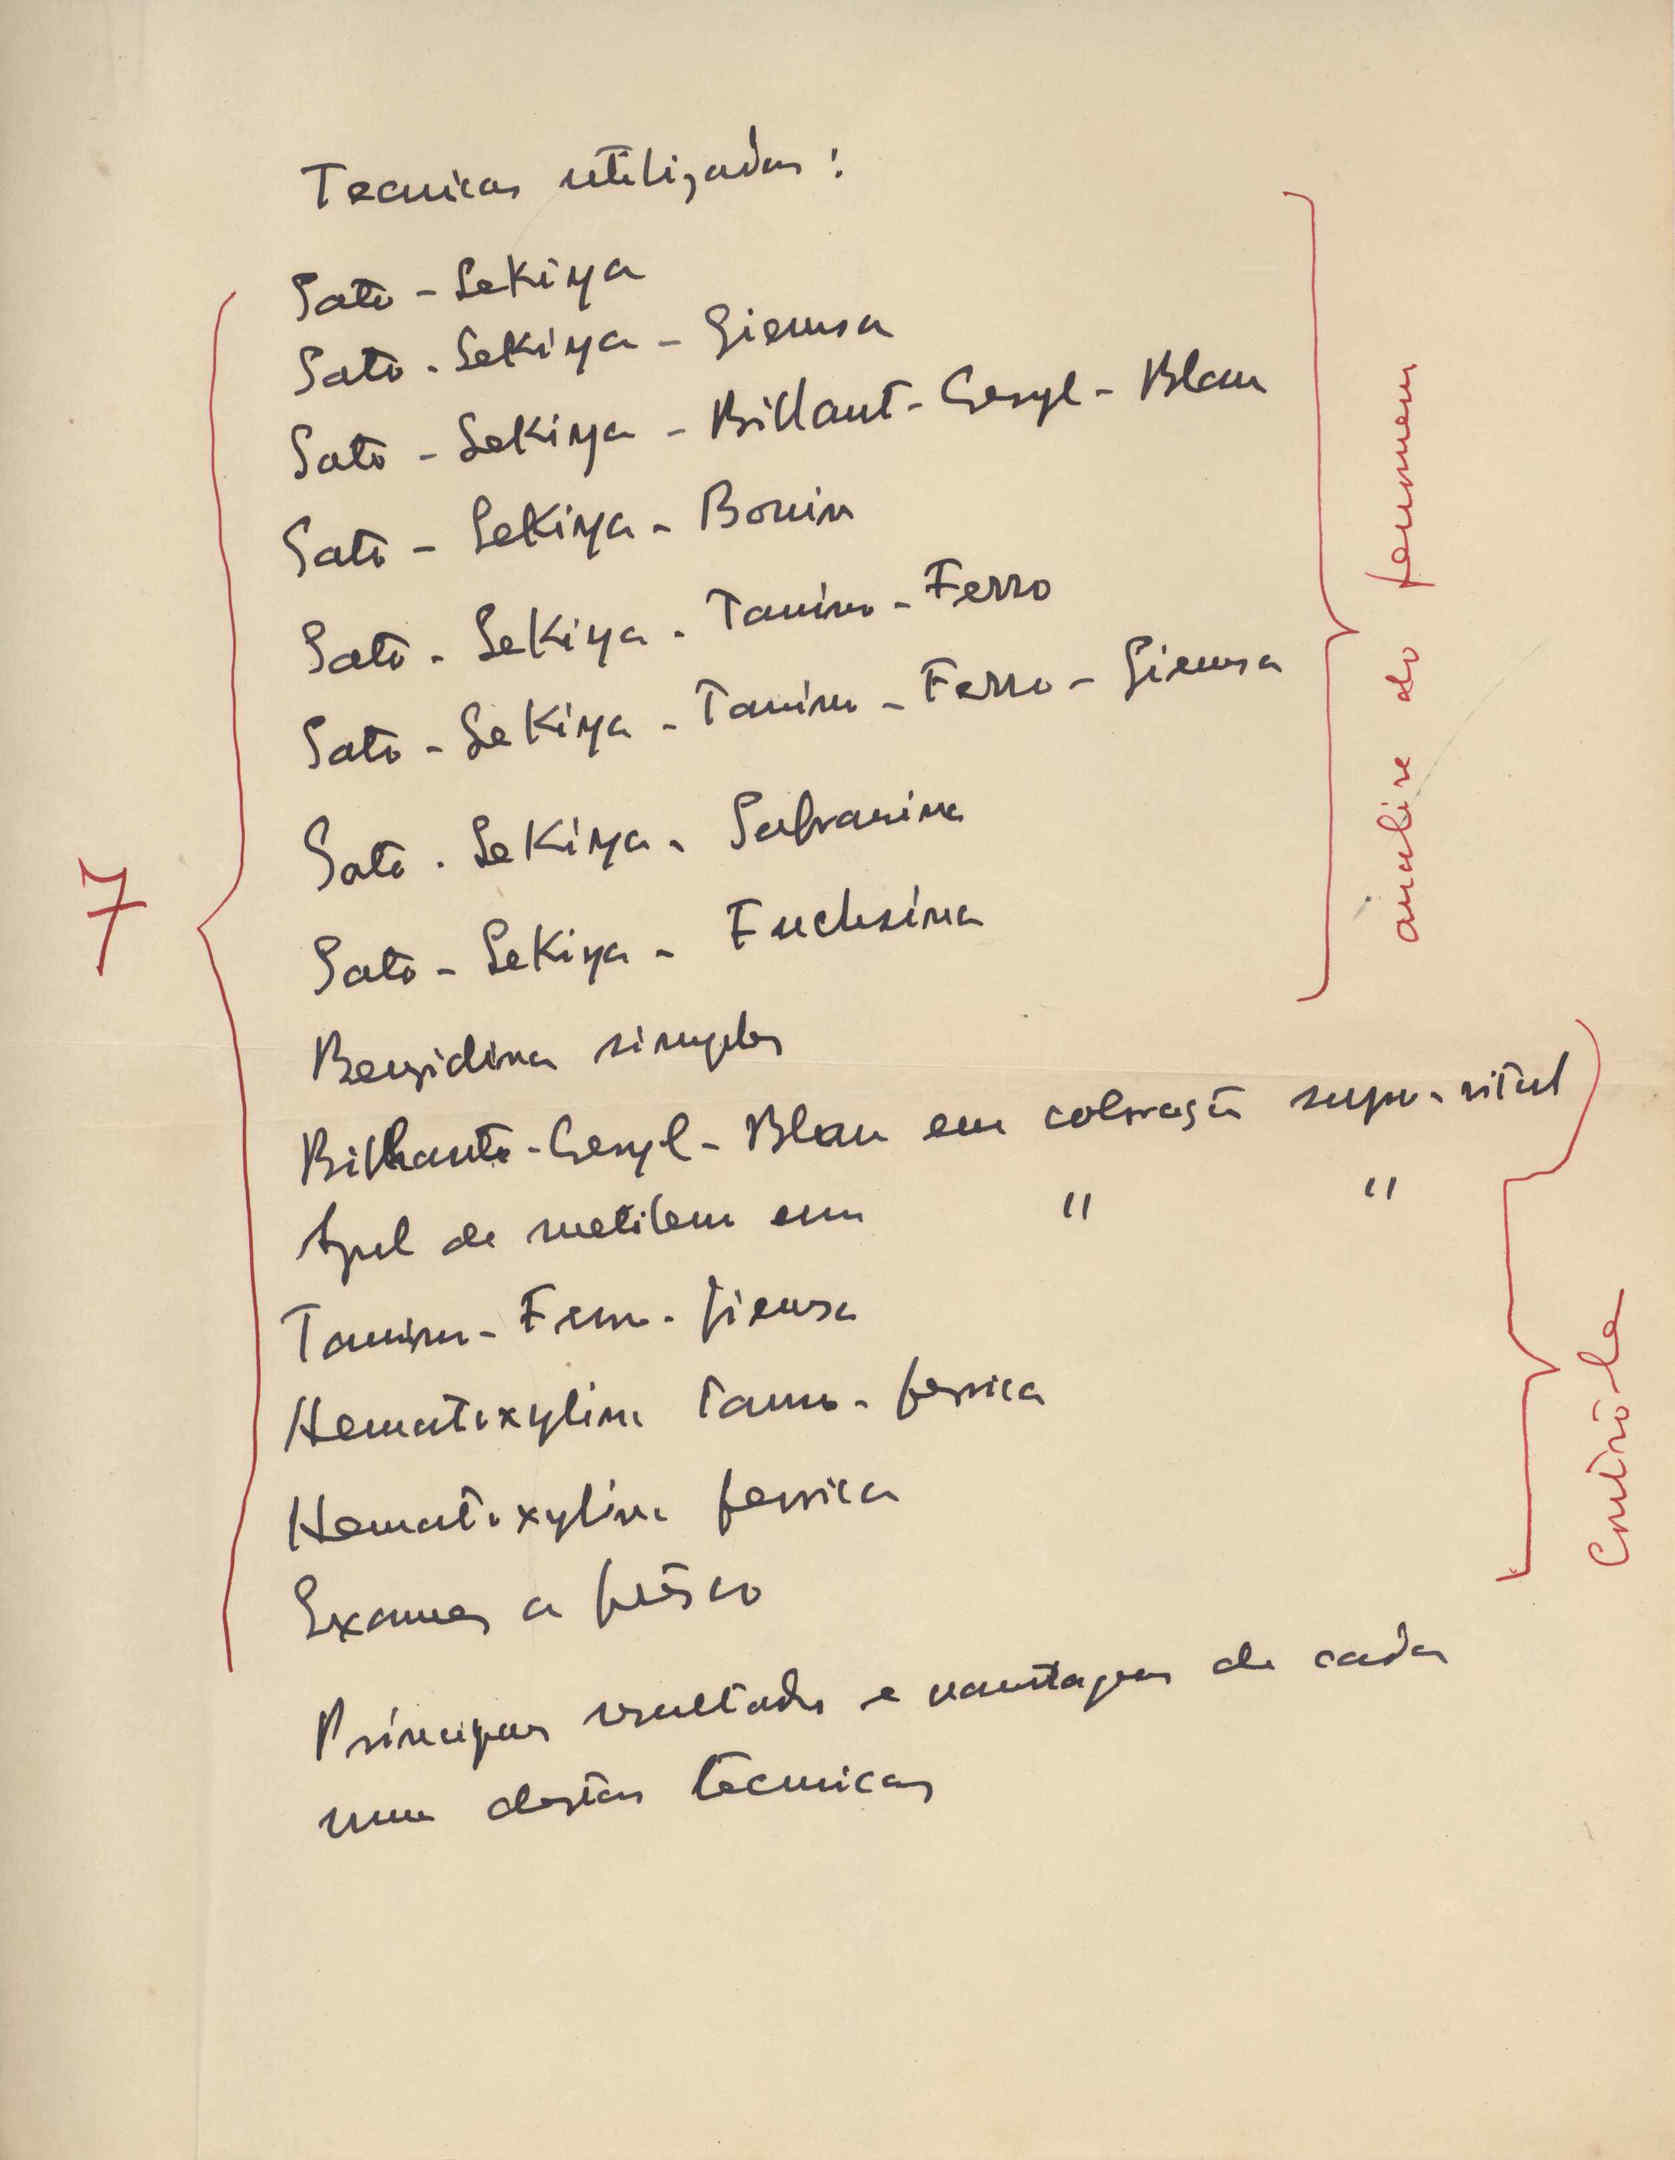 Tecnicas utilizadas:
Sato - Sekiya
Sato - Sekiya - Giemsa
Sato - Sekiya - Billant - Cresyl - Blau
Sato - Sekiya - Bouin
Sato - Sekiya - Tanino - Ferro
Sato - Sekiya - Tanino - Ferro - Giemsa
Sato - Sekiya - Safranina
Sato - Sekiya - Fuchsina
análise do fenomeno
7
Benzidina simples
Bilhante - Cresyl - Blau em coloração supra-vital
Azul de metileno em " "
Tanino - Ferro - Giemsa
Hematoxylina Tano - ferrica
Hematoxylina ferrica
Exames a frêsco
Contrôle
Principaes resultados e vantagens de cada
uma destas tecnicas